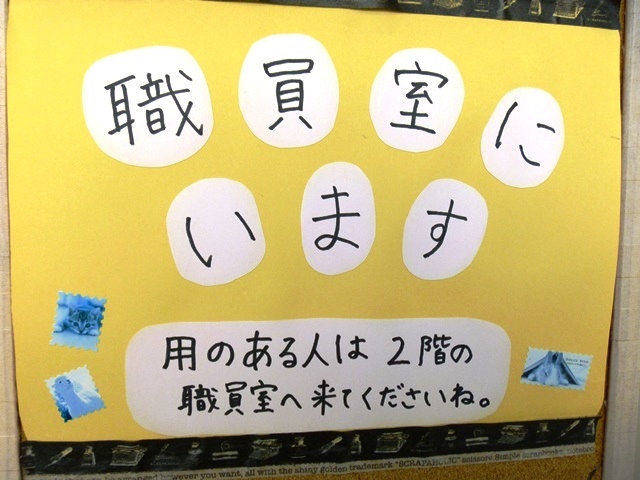 職員室に
います
用のある人は2階の
職員室へ来てくださいね。
however you want, all with the shiny golden trademark "SCRAPAHOLIC" scissors Simple